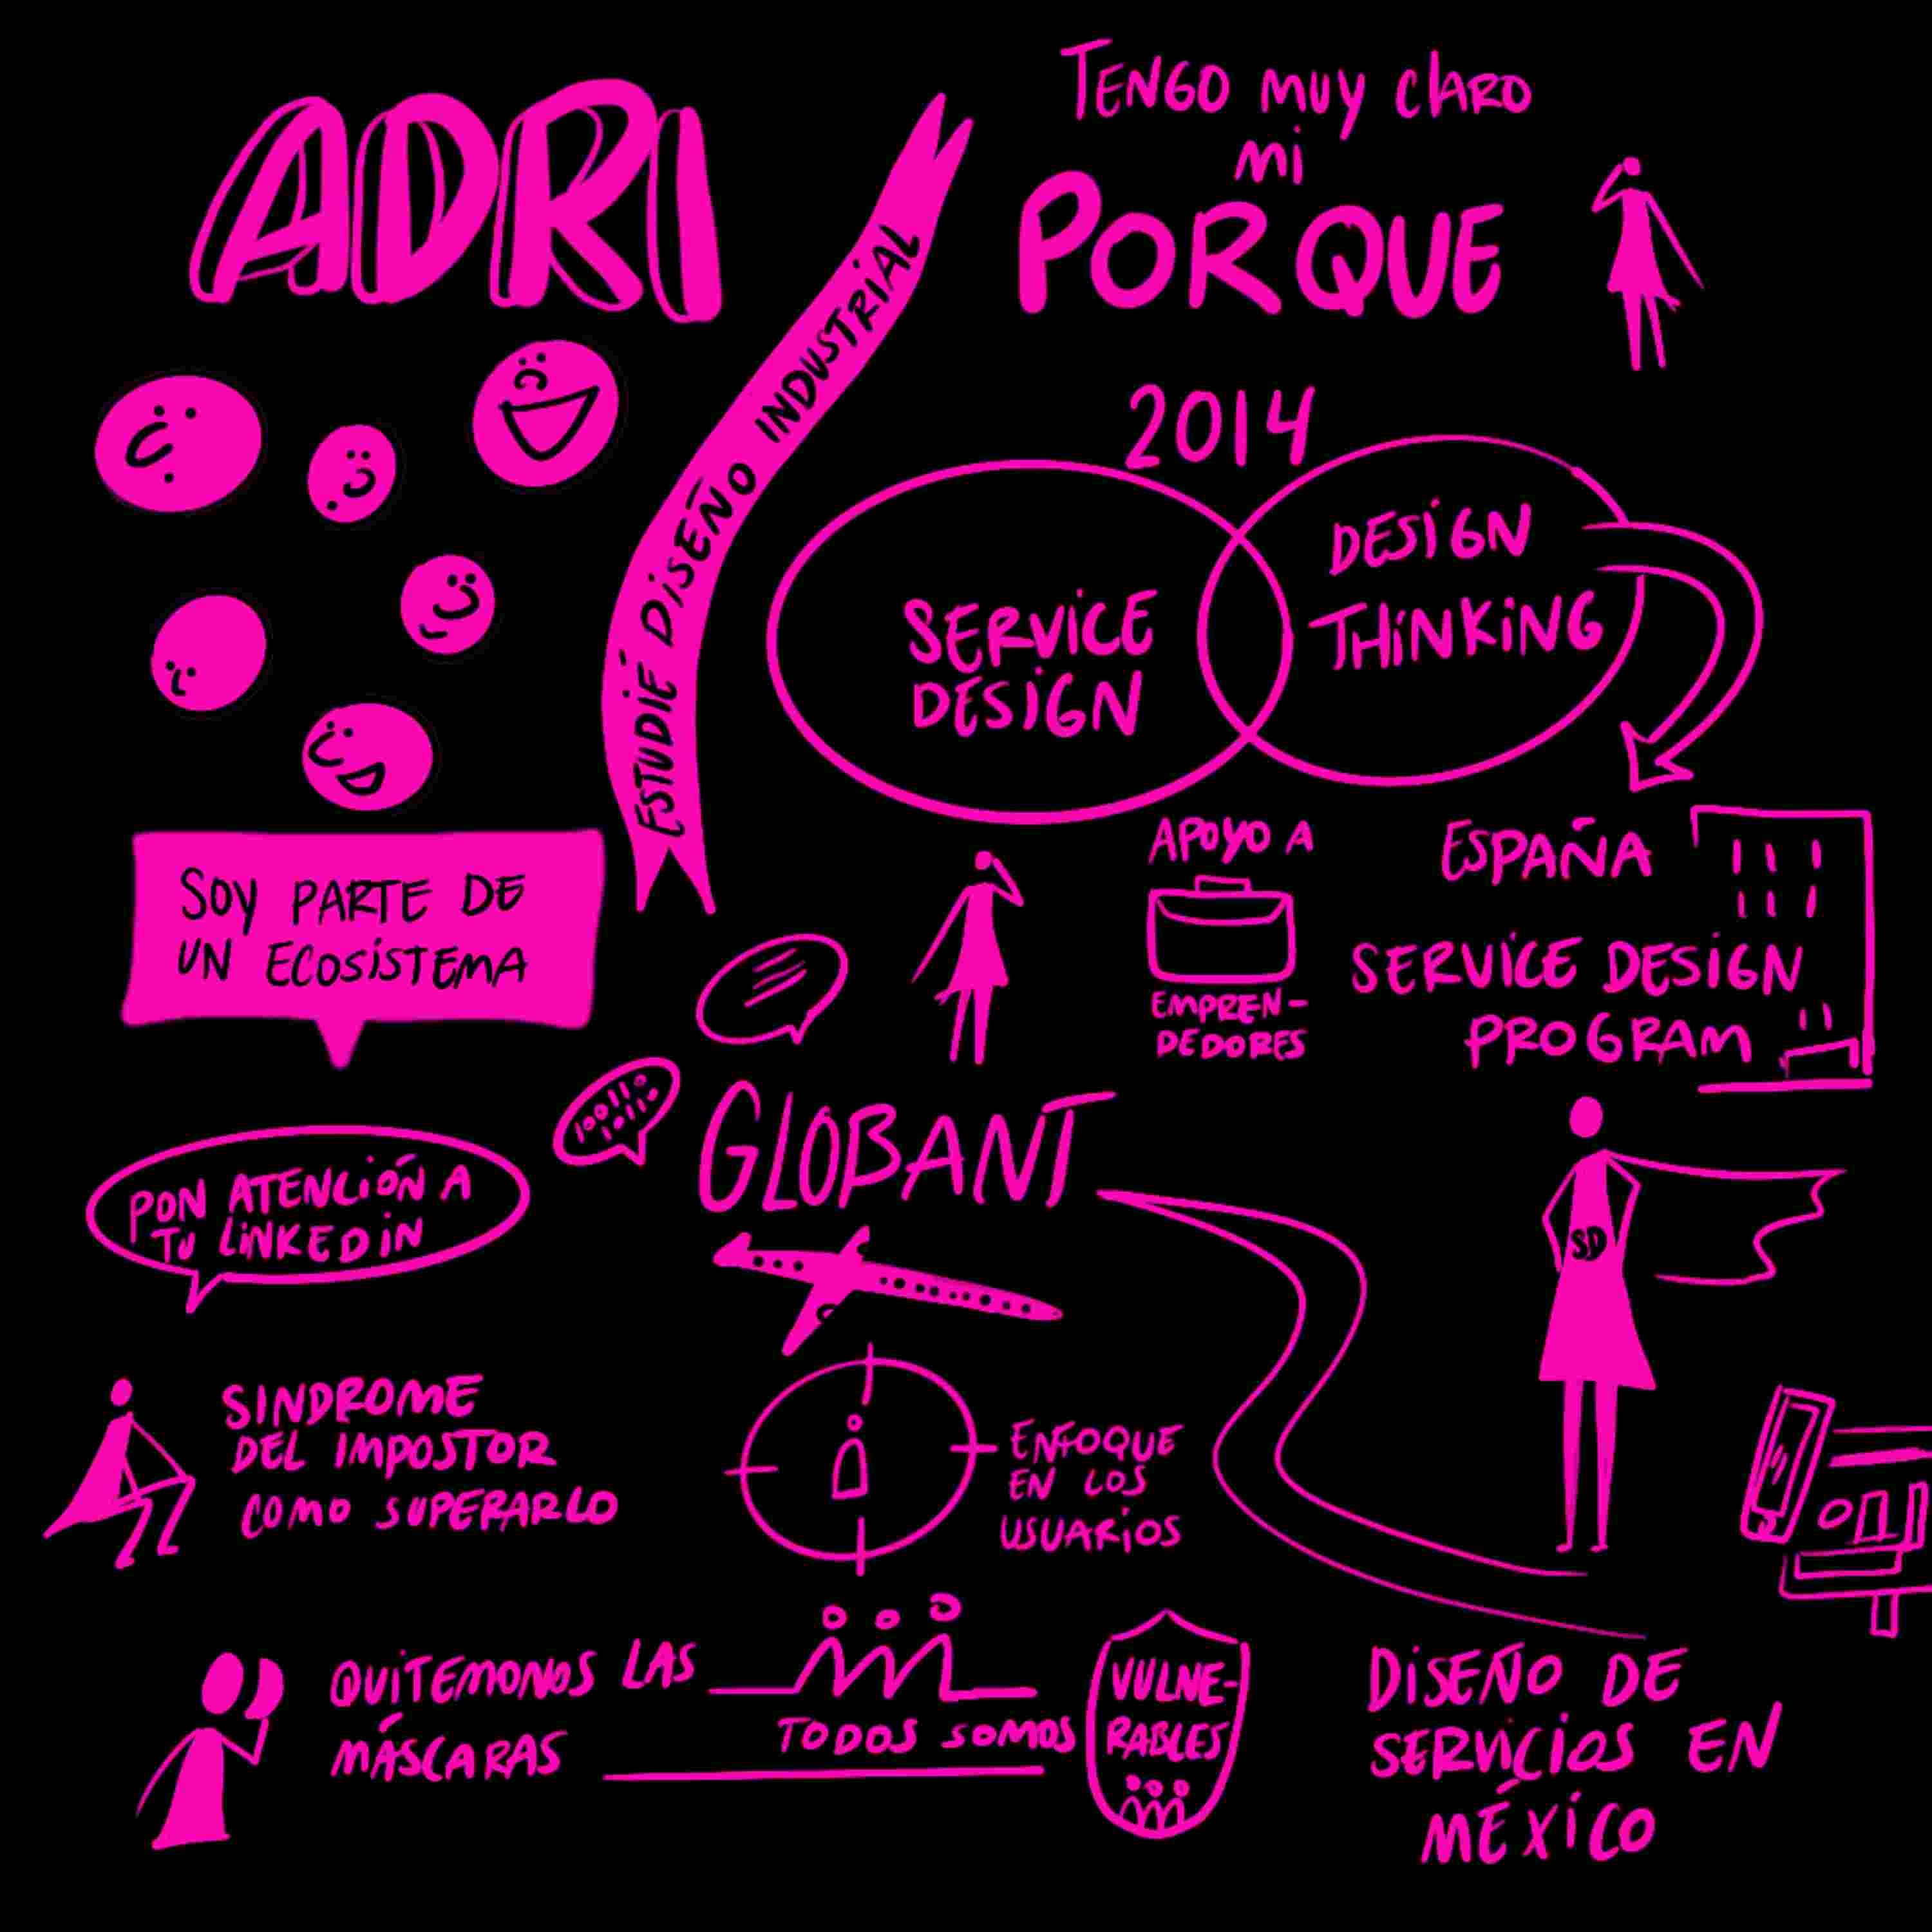 ADRI
ESTUDIÉ DISEÑO INDUSTRIAL
TENGO MUY CLARO
MI
PORQUE
2014
SERVICE
DESIGN
DESIGN
THINKING
SOY PARTE DE
UN ECOSISTEMA
APOYO A
EMPREN-
DEDORES
ESPAÑA
SERVICE DESIGN
PROGRAM
PON ATENCIÓN A
TU LINKEDIN
GLOBANT
SD
SINDROME
DEL IMPOSTOR
COMO SUPERARLO
ENFOQUE
EN LOS
USUARIOS
QUITEMONOS LAS
MÁSCARAS
TODOS SOMOS
VULNE-
RABLES
DISEÑO DE
SERVICIOS EN
MÉXICO